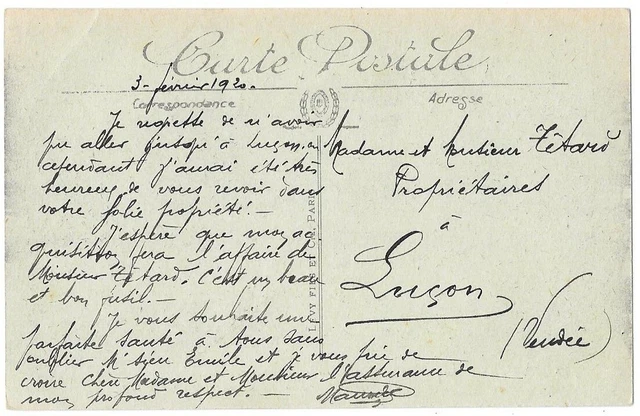 Carte Postale
3 - février 1920.
Correspondance
Adresse
Je regrette de n'avoir
pu aller jusqu'à Luçon,
cependant j'aurai été très
heureux de vous revoir dans
votre jolie propiété! -
J'espère que mon ac
quisition fera l'affaire de
Monsieur Têtard. C'est un beau
et bon fusil. -
Je vous souhaite une
parfaite santé à tous sans
oublier M'sieu Emile et je vous prie de
croire chère Madame et Monsieur l'assurance de
mon profond respect. -
LEVY FILS ET Cie. PARIS
Madame et Monsieur Têtard
Propriétaires
à
Luçon
(Vendée)